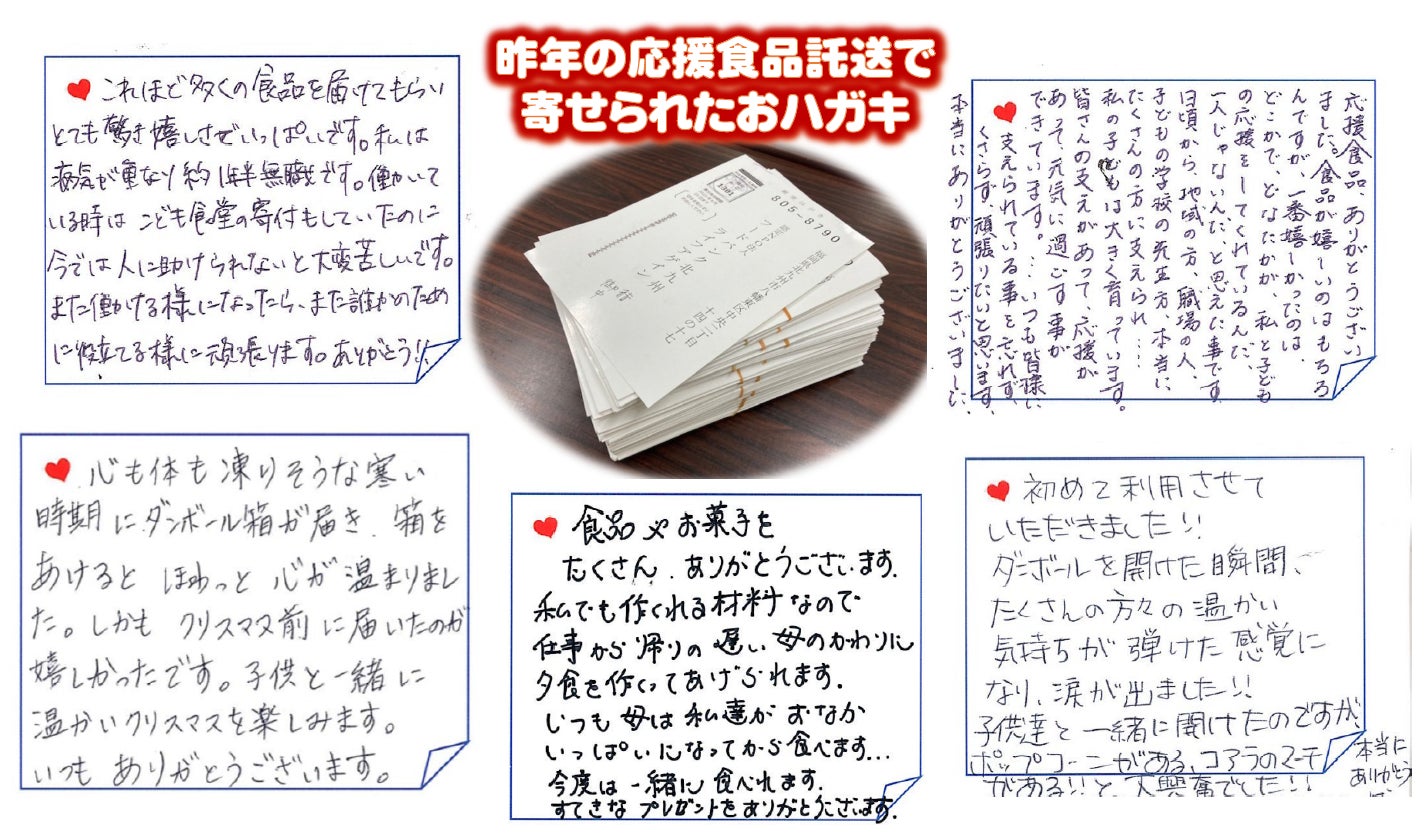 昨年の応援食品託送で
寄せられたおハガキ
これほど多くの食品を届けてもらい
とても驚き嬉しさでいっぱいです。私は
病気が重なり約1年半無職です。働いて
いる時はこども食堂の寄付もしていたのに
今では人に助けられないと大変苦しいです。
また働ける様になったら、また誰かのため
に役立てる様に頑張ります。ありがとう!!
応援食品、ありがとうござい
ました。食品が嬉しいのはもちろ
んですが、一番嬉しかったのは、
どこかで、どなたかが、私と子ども
の応援をしてくれているんだ、
一人じゃないんだ、と思えた事です。
日頃から、地域の方、職場の人、
子どもの学校の先生方、本当に
たくさんの方に支えられ…
私の子どもは大きく育っています。
皆さんの支えがあって、応援が
あって、元気に過ごす事が
できています。…いつも皆様に
支えられている事を忘れず、
くさらず、頑張りたいと思います。
本当にありがとうございました。
805-8790
1301
福岡県北九州市八幡東区中央二丁目
十四の十七
認定NPO法人
フードバンク北九州
ライフアゲイン 行
御中
心も体も凍りそうな寒い
時期にダンボール箱が届き、箱を
あけると ほわっと 心が温まりまし
た。しかも クリスマス前に届いたのが
嬉しかったです。子供と一緒に
温かいクリスマスを楽しみます。
いつも ありがとうございます。
食品やお菓子を
たくさん、ありがとうございます。
私でも作くれる材料なので
仕事から帰りの遅い母のかわりに
夕食を作くってあげられます。
いつも母は私達がおなか
いっぱいになってから食べます…
今度は一緒に食べれます。
すてきなプレゼントをありがとうございます。
初めて利用させて
いただきました!!
ダンボールを開けた瞬間、
たくさんの方々の温かい
気持ちが弾けた感覚に
なり、涙が出ました!!
子供達と一緒に開けたのですが、
ポップコーンがある、コアラのマーチ
がある!!と、大興奮でした!!
本当に
ありがとう